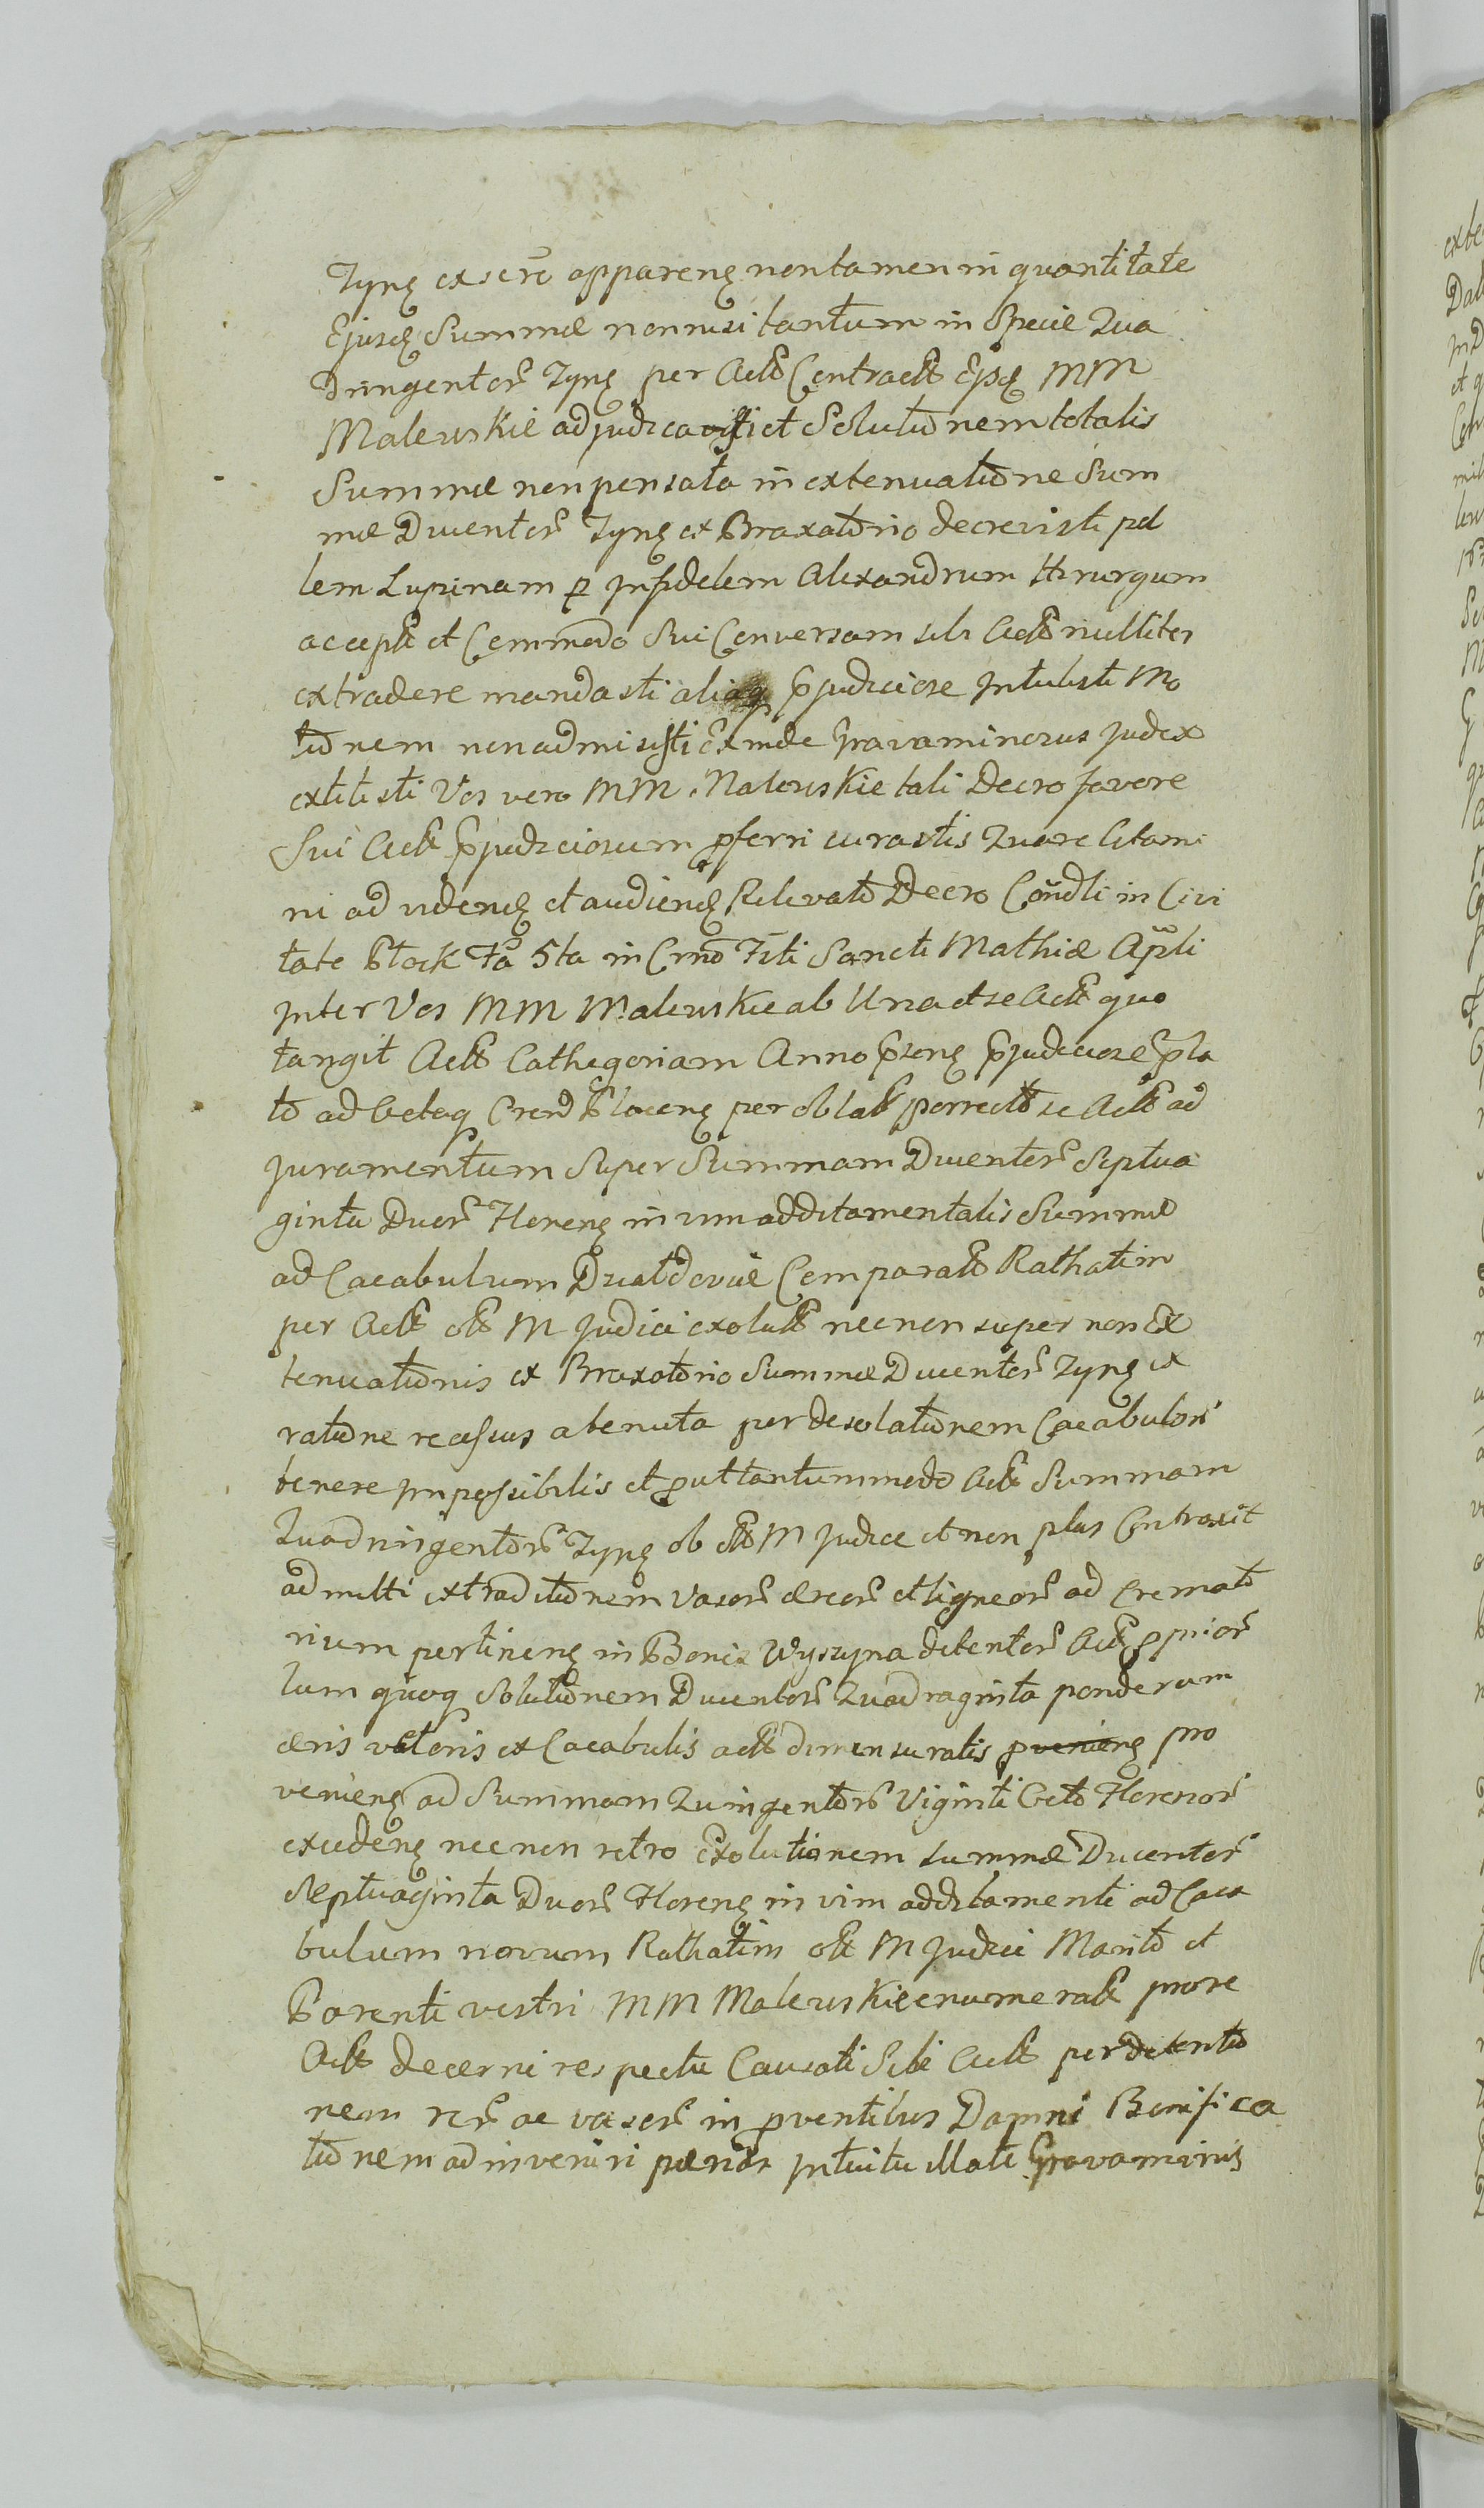 Tynę ex scrō apparenę non tamen in quantitate
Ejusdę Summæ non nisi tantum in Specie Qua
dringentor̄ Tynę per Actō Contract̄ Epdę MM
Malewskie adjudicavisti et Solutionem totalis
Summæ non pensata in extenuatione Sum
mæ Ducentor̄ Tynę ex Braxatorio decrevisti pel
lem Lupinam p infidelem Alexandrum Hirurgum
accept̄ et Commodo Sui Conversam sibi Actō nulliter
extradere mandasti aliaq pjudiciose Intulisti Mo
tionem non admisisti Exinde Gravaminosus Judex
extitisti Vos vero MM Malewskie tali Decro favore
Sui Act̄ pjudiciosum pferri curastis Quare Citami
ni ad videndę et audiendę Relevato Decro Condli in Civi
tate Płock Fa 5ta in Crnō Fsti Sancti Mathiæ Apli
Inter Vos MM Malewskie ab Una et se Act̄ quo
tangit Actō Cathegoriam Anno psenę pjudiciose pla
to ad Octaq Crend Plocenę per oblat̄ porrecto se Actō ad
juramentum Super Summam Ducentor̄ Septua
ginta Duor̄ Florenę in vim additamentalis Summæ
ad Cacabulum Comparatō Rathatim
per Act̄ olt̄ M Judici exolut̄ nec non super non Ex
tenuationis ex Braxatorio Summæ Ducentor̄ Tynę ex
ratione recessus a tenuta per desolationem Cacabulor̄
tenere impossibilis et put tantummodo Act̄ Summam
Quadringentor̄ Tynę ab oltō M Judice et non plus Contraxit
admitti extraditionem vasor̄ æreor̄ et ligneor̄ ad Cremato
rium pertinenę in Bonis Wyszyna detentor̄ Act̄ prior̄
tum quoq Solutionem Ducentor̄ Quadraginta ponderum
æris veteris ex Cacabulis actō dimensuratis pvenienę pro
venienę ad Summam Quingentor̄ Viginti Octo Florenor̄
excedenę nec non retro Exolutionem summæ Ducentor̄
Septuaginta Duor̄ Florenę in vim additamenti ad Caca
bulum novum Rathatim olt̄ M Judici Marito et
Parenti vestri MM Malewskie enumerat̄ prore
Actō decerni respectu Causati Sibi Act̄ per detentio
nem rer̄ ac vasor̄ in pventibus Damni Bonifica
tionem adinveniri pænas Intuitu illati Gravaminis